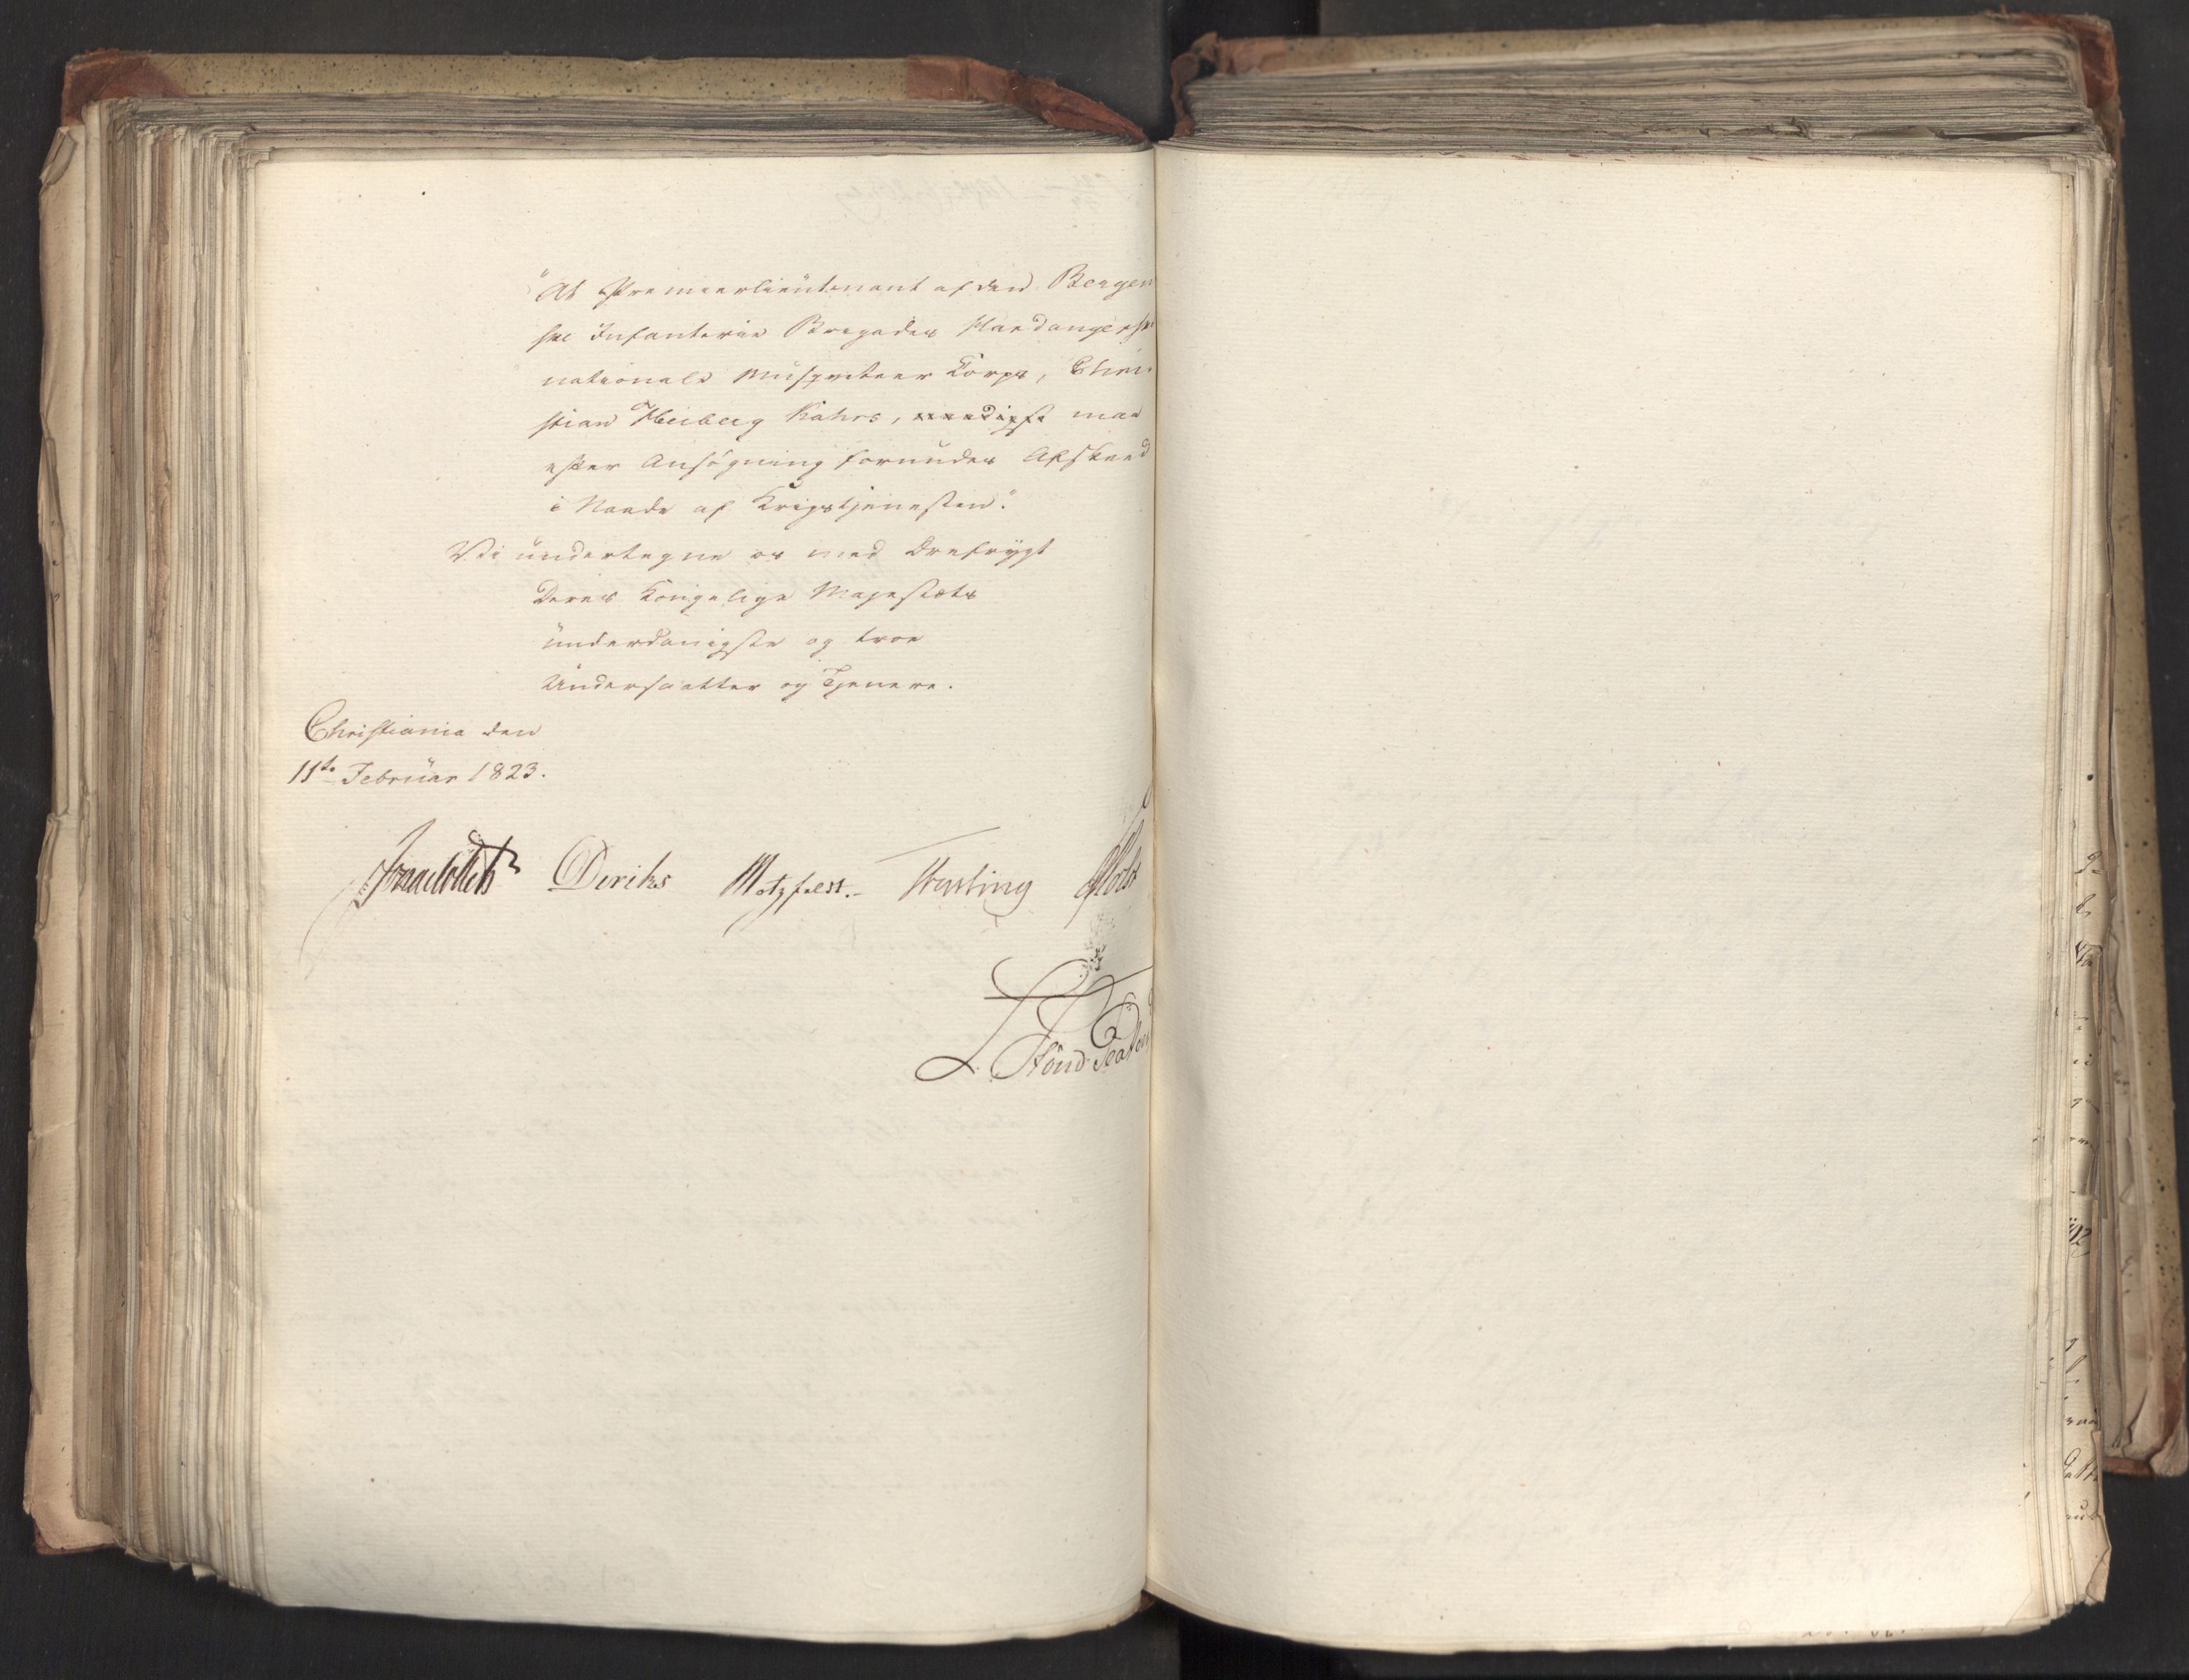 "At Premierlieutenant af den Bergen
ske Infanterie Brigades Hardangerske
nationale Musqveteer Corps, Chri-
stian Heiberg Kahrs, naadigst maa
efter Ansøgning forundes Afskeed
i Naade af Krigstjenesten."
Vi undertegne os med Ærefrygt
Deres Kongelige Majestæts
underdanigste og troe
Undersaatter og Tjenere.
Christiania den
11te Februar 1823.
Jonas Collett Diriks Motzfeldt. Krefting Holst